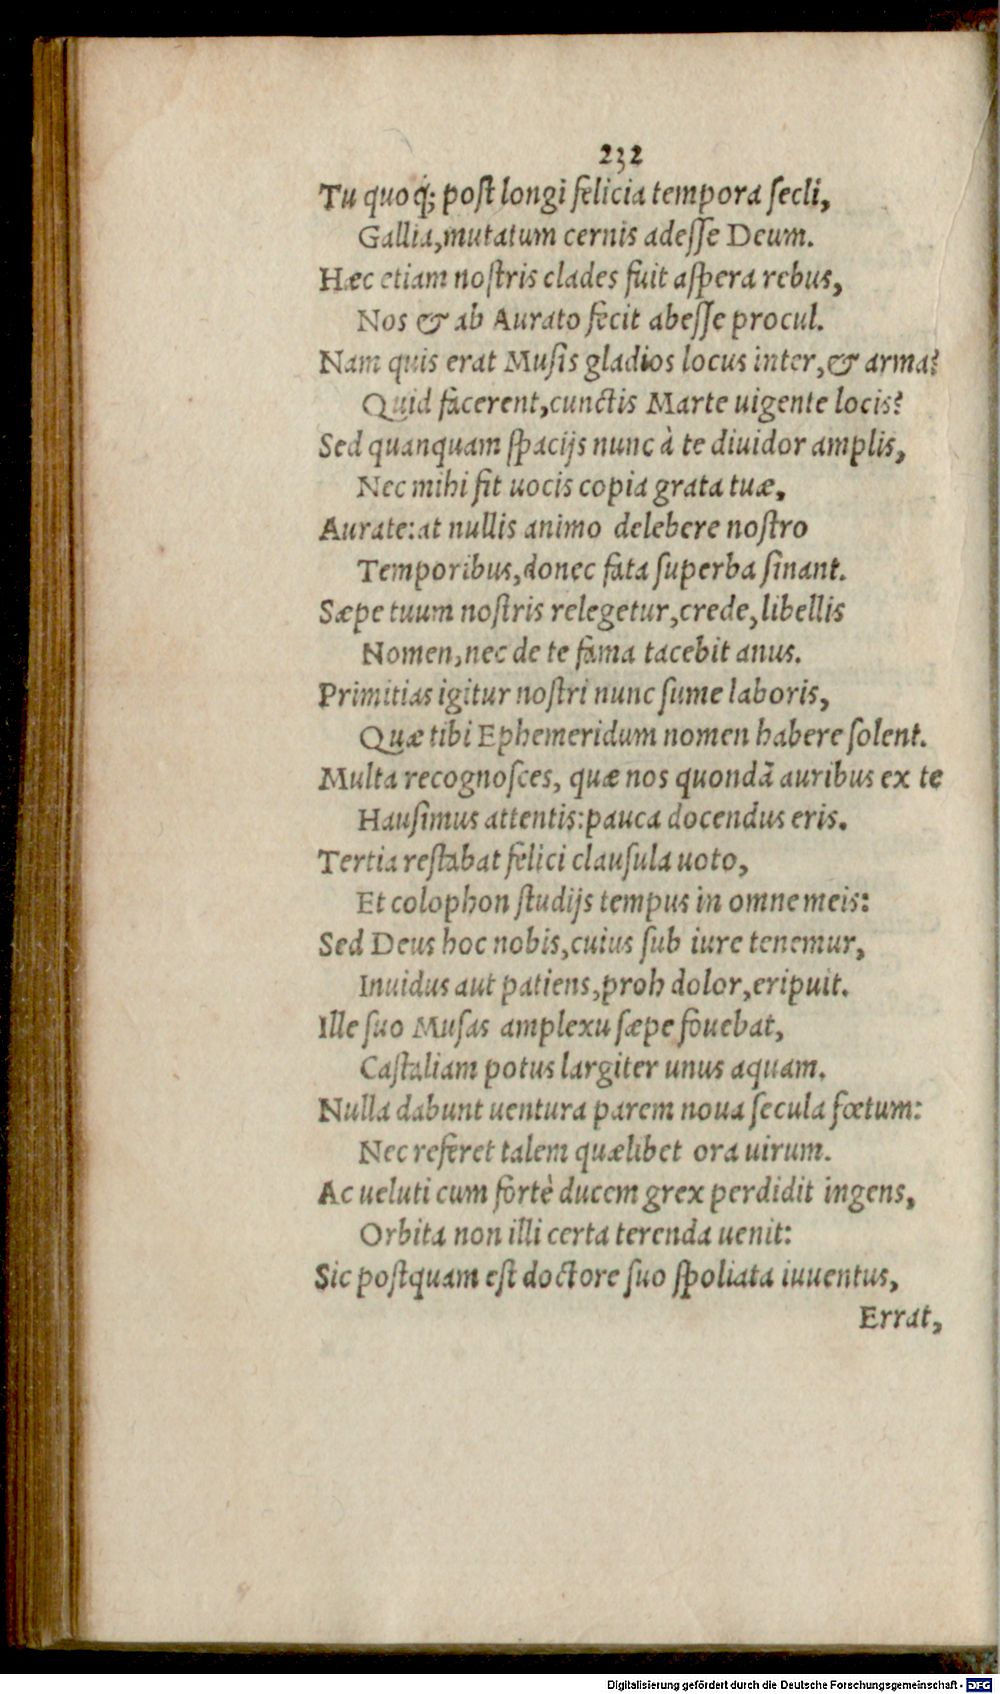 232
Tu quoq́; post longi felicia tempora secli,
Gallia, mutatum cernis adesse Deum.
Hæc etiam nostris clades fuit aspera rebus,
Nos & ab Aurato fecit abesse procul.
Nam quis erat Musis gladios locus inter, & arma?
Quid facerent, cunctis Marte uigente locis?
Sed quanquam spacijs nunc à te diuidor amplis,
Nec mihi fit uocis copia grata tuæ,
Aurate: at nullis animo delebere nostro
Temporibus, donec fata superba sinant.
Sæpe tuum nostris relegetur, crede, libellis
Nomen, nec de te fama tacebit anus.
Primitias igitur nostri nunc sume laboris,
Quæ tibi Ephemeridum nomen habere solent.
Multa recognosces, quæ nos quondã auribus ex te
Hausimus attentis: pauca docendus eris.
Tertia restabat felici clausula uoto,
Et colophon studijs tempus in omne meis:
Sed Deus hoc nobis, cuius sub iure tenemur,
Inuidus aut patiens, proh dolor, eripuit.
Ille suo Musas amplexu sæpe fouebat,
Castaliam potus largiter unus aquam.
Nulla dabunt uentura parem noua secula fœtum:
Nec referet talem quælibet ora uirum.
Ac ueluti cum fortè ducem grex perdidit ingens,
Orbita non illi certa terenda uenit:
Sic postquam est doctore suo spoliata iuuentus,
Errat,
Digitalisierung gefördert durch die Deutsche Forschungsgemeinschaft - DFG